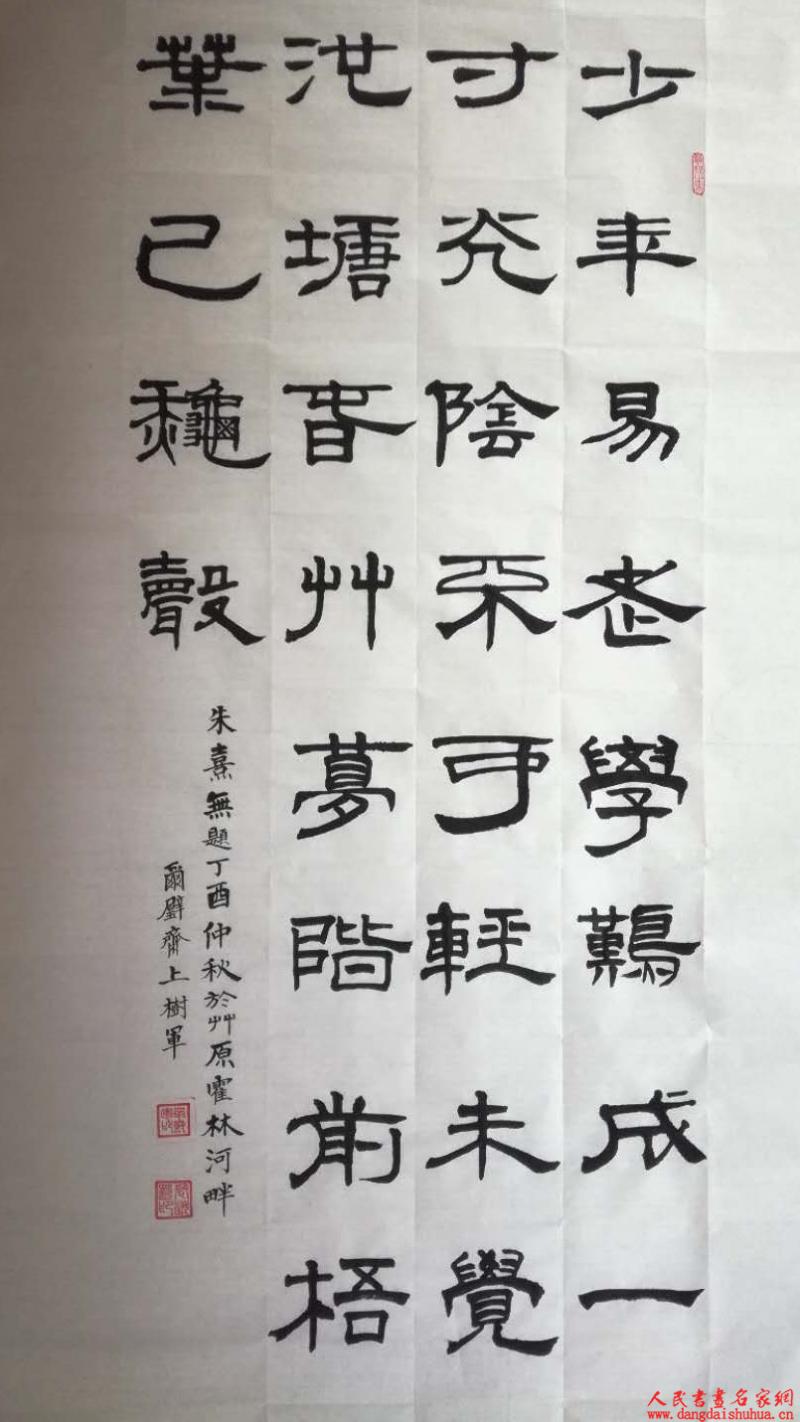 少年易老學難成一
寸光陰不可輕未覺
池塘春艸夢階前梧
葉已龝聲
朱熹無題丁酉仲秋於艸原霍林河畔
爾璧齋上樹軍
人民書畫名家網
www.dangdaishuhua.cn